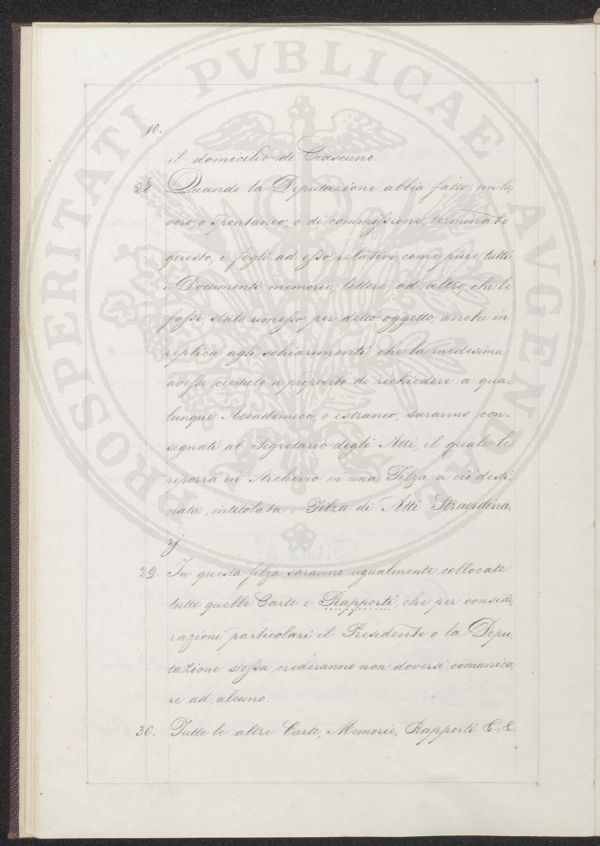 10.
il domicilio di Ciascuno.
28 Quando la Deputazione abbia fatto un la,
voro, o Trentaneo, o di commissione, terminato
questo, i fogli ad esso relativi, come pure tutti
i Documenti memorie, lettere, od altro che le
fosse stato rimesso per detto oggetto, anche in
replica agli schiarimenti che la medesima
avesse creduto a proposito di richiedere a qua,
lunque Accademico, o estraneo, saranno con,
segnati al Segretario degli Atti, il quale le
riporrà in Archivio in una Filza a ciò desti,
nata, intitolata - Filza di Atti Straordina,
rj
29. In questa filza saranno ugualmente collocate
tutte quelle Carte e Rapporti, che per conside,
razioni particolari il Presidente o la Depu,
tazione stessa, crederanno non doversi comunica,
re ad alcuno.
30. Tutte le altre Carte, Memorie, Rapporti &. &.
PROSPERITATI PVBLICAE AVGENDAE